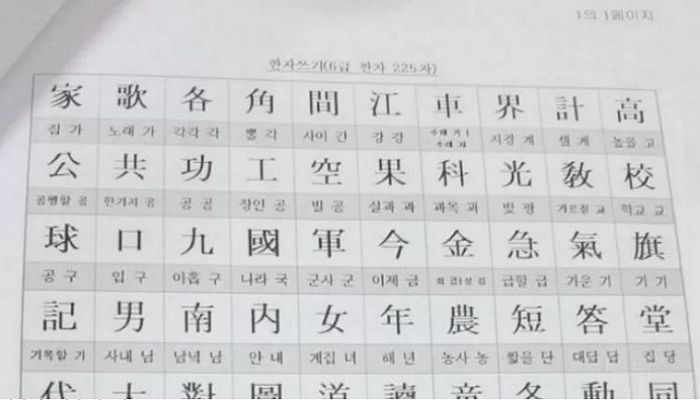 1의 1페이지
한자쓰기(6급 한자 225자)
家 歌 各 角 間 江 車 界 計 高
집 가 노래 가 각각 각 뿔 각 사이 간 강 강 수레 거 수레 차 지경 계 셀 계 높을 고
公 共 功 工 空 果 科 光 敎 校
공평할 공 한가지 공 공 공 장인 공 빌 공 실과 과 과목 과 빛 광 가르칠 교 학교 교
球 口 九 國 軍 今 金 急 氣 旗
공 구 입 구 아홉 구 나라 국 군사 군 이제 금 급할 급 기운 기 기 기
記 男 南 內 女 年 農 短 答 堂
기록할 기 사내 남 남녘 남 안 내 계집 녀 해 년 농사 농 짧을 단 대답 답 집 당
代 大 對 圖 道 讀 童 冬 動 同